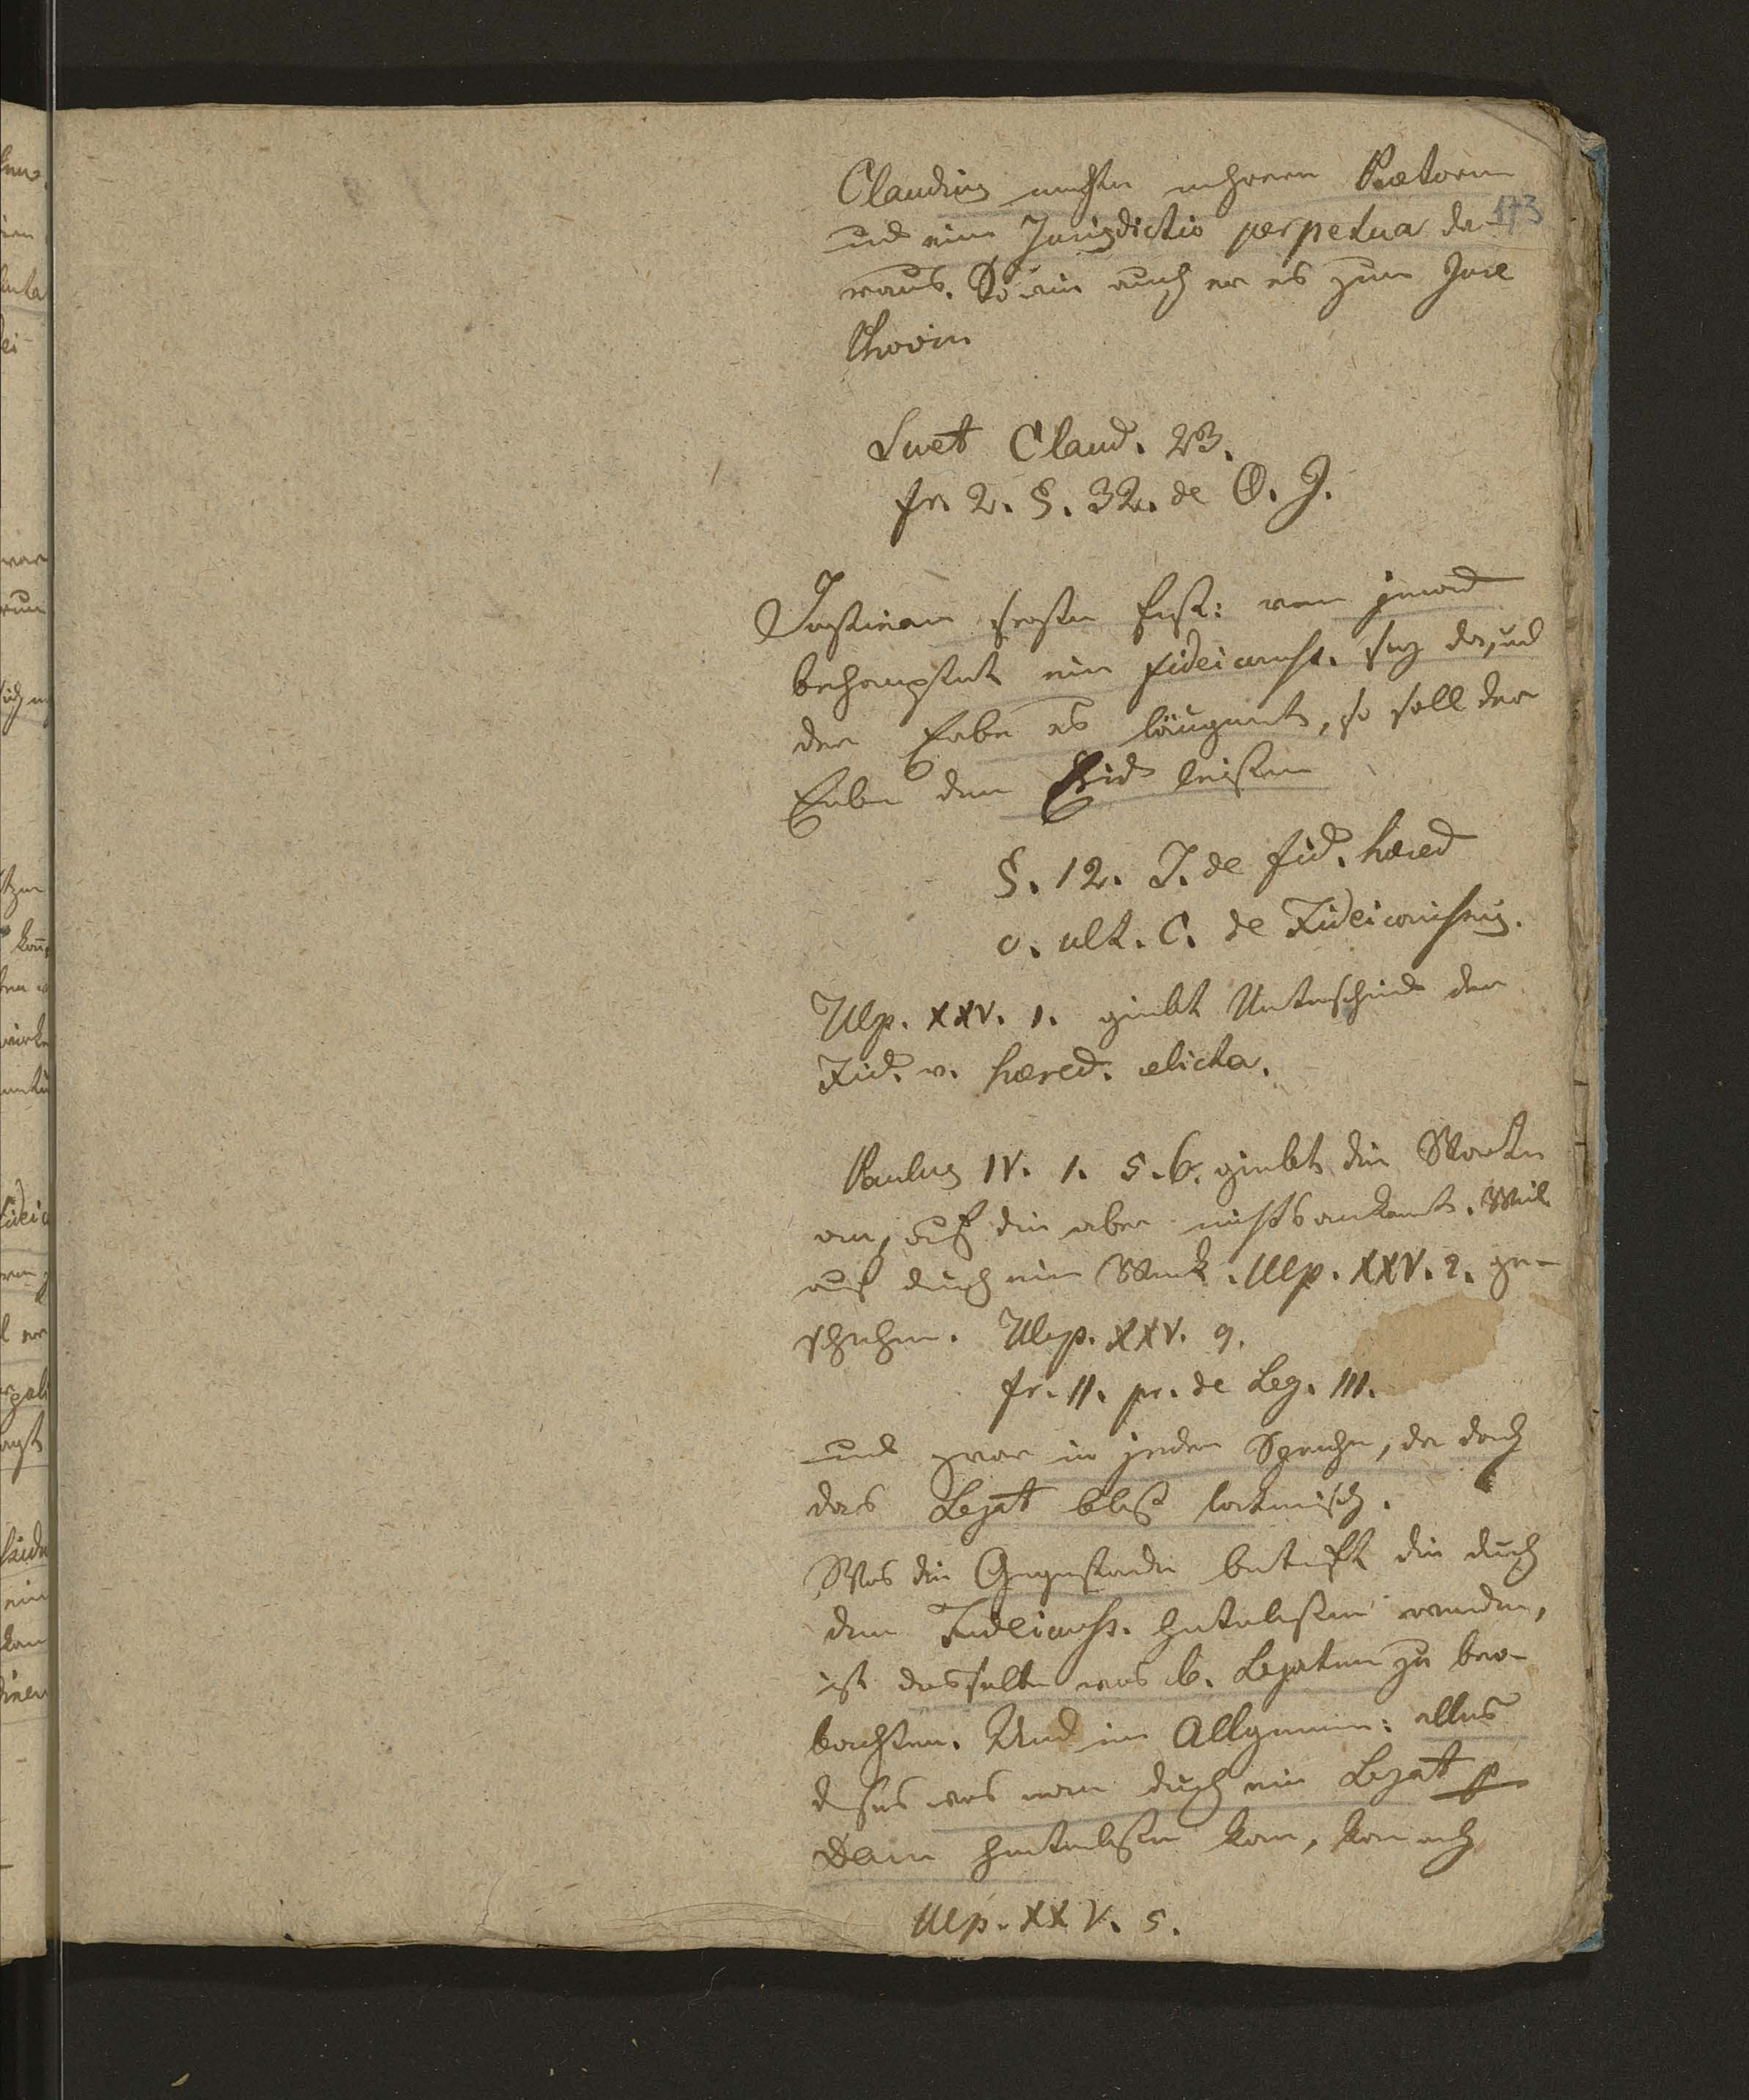 Claudius machte mehrere Prætoren
173
und eine Jurisdictio perpetua da-
raus. So wie auch er es zum Jure
Suet Claud. 23.
fr. 2. §. 32. de O. J.
Justinian setzte fest: wen jemand
behauptet ein fideicomiss. sey da, und
der Erbe es läugnet, so soll der
Erbe den Eid leisten
§. 12. J. de fid. hæred
c. ult. C. de Fideicomissis.
Ulp. XXV. 1. giebt Unterschied der
Fid. v. hæred. relicta.
Paulus IV. 1. 5. 6. giebt die Worte
an, auf die aber nichts ankomt. Weil
auch durch ein Wink. Ulp. XXV. 2. ge-
schehen. Ulp. XXV. 9.
fr. 11. pr. de Leg. III.
und zwar in jeder Sprache, da doch
das Legat bloß lateinisch.
Was die Gegenstände betrifft die durch
den Fideicomiss. hinterlassen werden,
ist dasselbe was b. Legaten zu beo-
bachten. Und im Allgemein: alles
dasjes was man durch ein Legat p
Dam hinterlassen kan, kan auch
Ulp. XXV. 5.